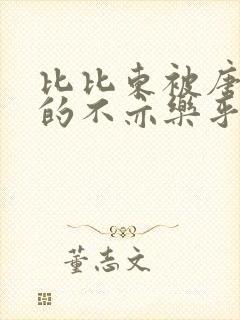 比比东被唐
的不亦乐乎
董志文